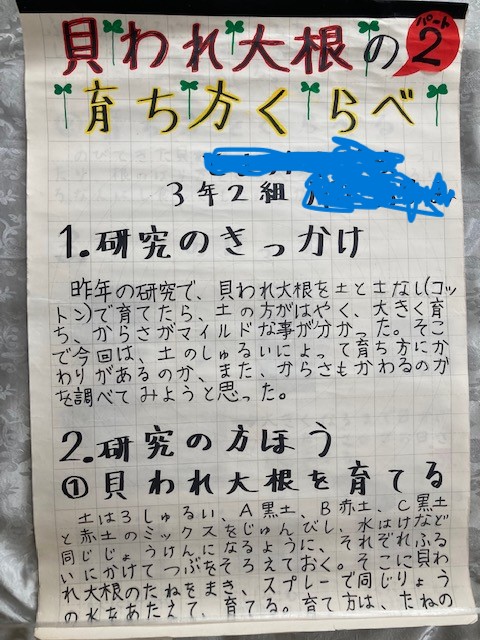 貝われ大根の
パート2
育ち方くらべ
3年2組
1.研究のきっかけ
昨年の研究で、貝われ大根を土と土なし(コッ
トン)で育てたら、土の方がはやく、大きく育
ち、からさがマイルドな事が分かった。そこ
で今回は、土のしゅるいによって育ち方にか
わりがあるのか、また、からさもかわるのか
を調べてみようと思った。
2.研究の方ほう
①貝われ大根を育てる
土は3しゅるい、A黒土、B赤土、C黒土
と赤土のミックスをじゅんびし、水はけなど
同じじょうけんになるように、それぞれふる
いにかけてつぶをそろえておく。そこに貝わ
れ大根のたねをまき、スプレーで同じりょう
の水をあたえて、育てる。育て方は、たねの